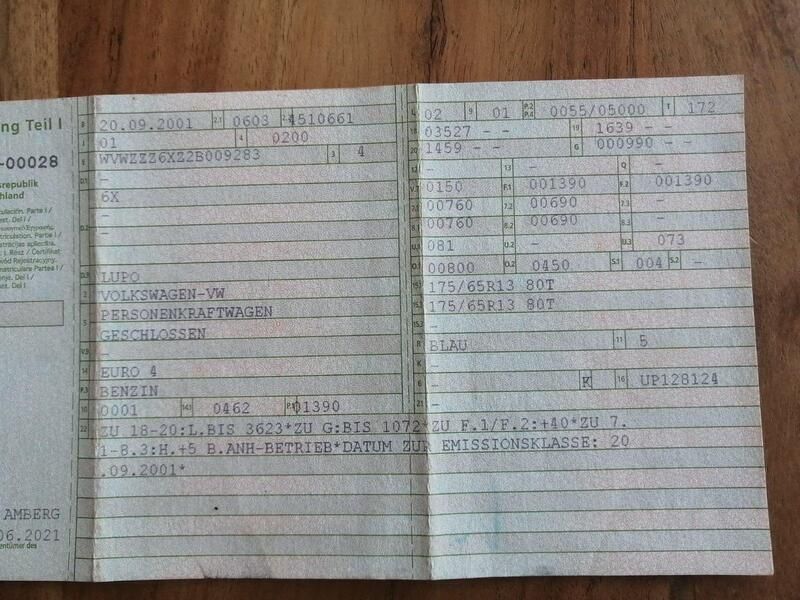 ng Teil I
-00028
srepublik
hland
AMBERG
06.2021
B 20.09.2001 2.1 0603 4510661
J 01 4 0200
E WVWZZZ6XZ2B009283 3 4
D.1 -
6X
D.2 -
-
-
D.3 LUPO
2 VOLKSWAGEN-VW
5 PERSONENKRAFTWAGEN
GESCHLOSSEN
V.9 -
14 EURO 4
P.3 BENZIN
10 0001 14.1 0462 P.1 01390
22 ZU 18-20:L.BIS 3623*ZU G:BIS 1072*ZU F.1/F.2:+40*ZU 7.
1-8.3:H.+5 B.ANH-BETRIEB*DATUM ZUR EMISSIONSKLASSE: 20
.09.2001*
L 02 9 01 P.2 P.4 0055/05000 T 172
18 03527 - - 19 1639 - -
20 1459 - - G 000990 - -
12 - 13 - Q -
V.7 0150 F.1 001390 F.2 001390
7.1 00760 7.2 00690 7.3 -
8.1 00760 8.2 00690 8.3 -
U.1 081 U.2 - U.3 073
O.1 00800 O.2 0450 S.1 004 S.2 -
15.1 175/65R13 80T
15.2 175/65R13 80T
15.3 -
R BLAU 11 5
K -
6 - K 16 UP128124
21 -